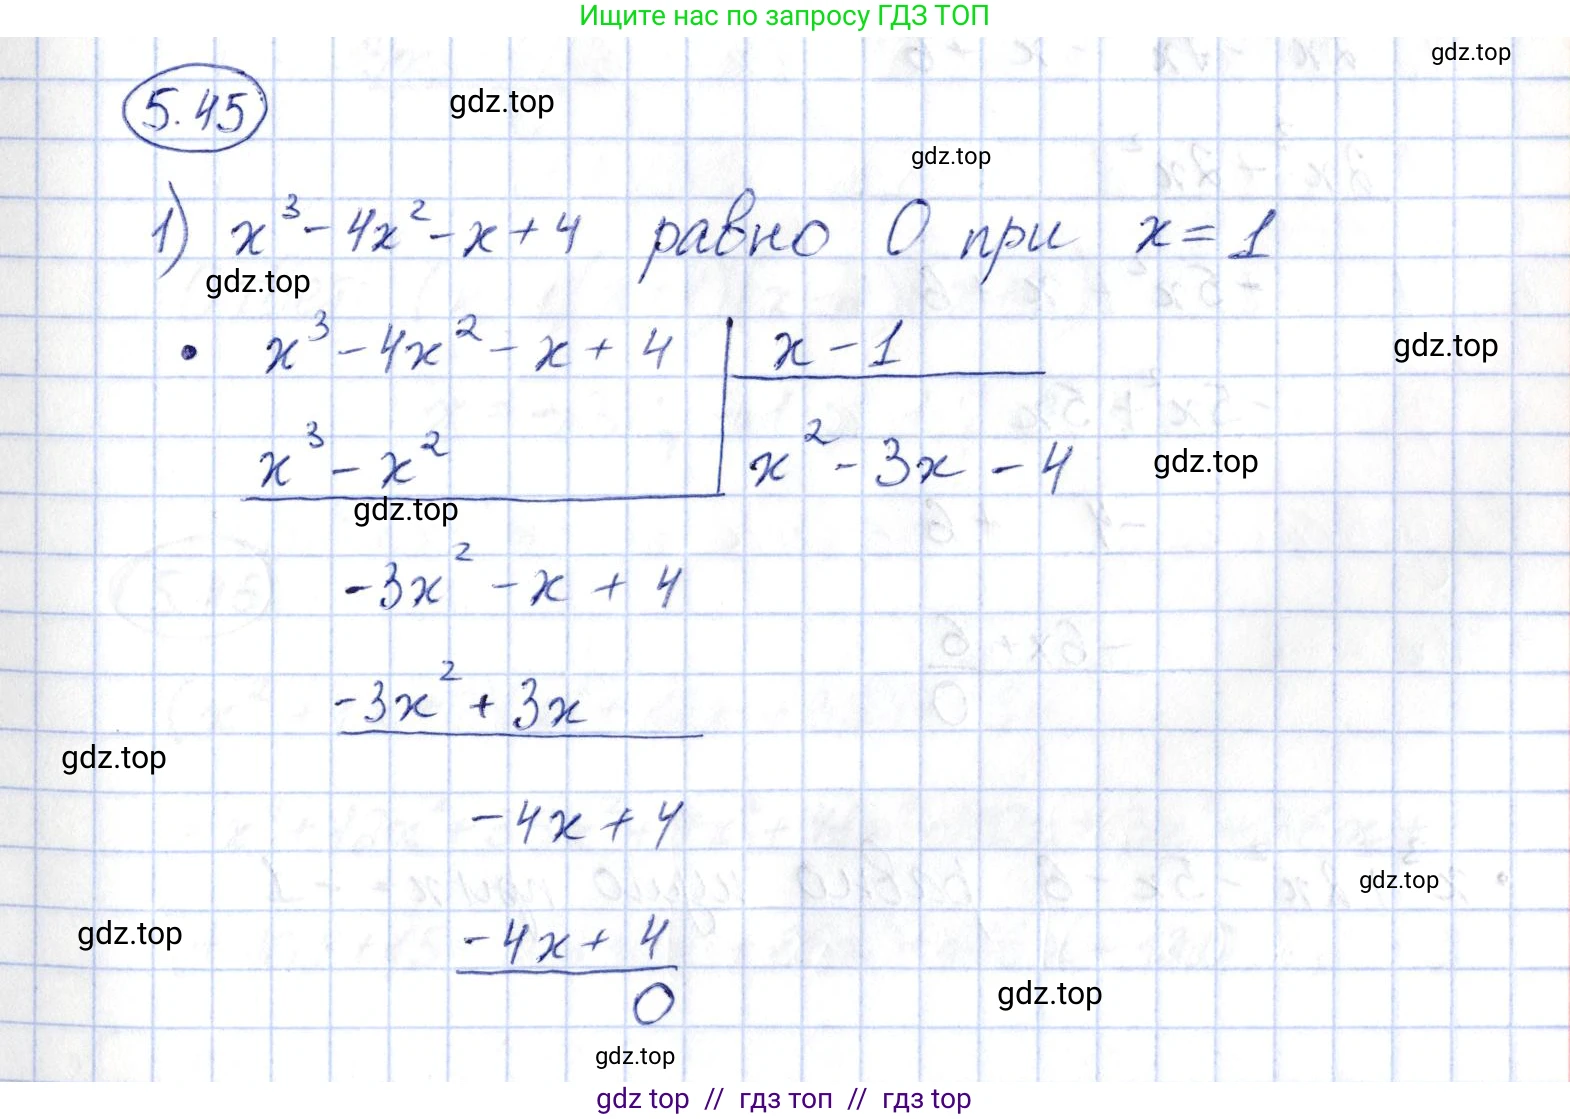 Ищите нас по запросу ГДЗ ТОП
gdz.top
5.45
gdz.top
gdz.top
1) x³ - 4x² - x + 4 равно 0 при x = 1
gdz.top
• x³ - 4x² - x + 4 | x - 1
gdz.top
x³ - x² x² - 3x - 4
gdz.top
gdz.top
-3x² - x + 4
-3x² + 3x
gdz.top
-4x + 4
gdz.top
gdz.top
-4x + 4
0
gdz.top
gdz.top
gdz top // гдз топ // гдз top